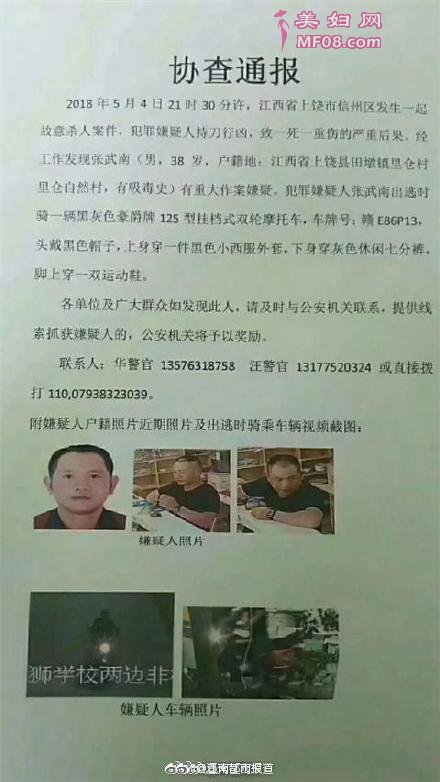 美妇网
MF08.com
协查通报
2018 年 5 月 4 日 21 时 30 分许，江西省上饶市信州区发生一起
故意杀人案件，犯罪嫌疑人持刀行凶，致一死一重伤的严重后果。经
工作发现张武南（男，38 岁，户籍地：江西省上饶县田墩镇里仓村
里仓自然村，有吸毒史）有重大作案嫌疑。犯罪嫌疑人张武南出逃时
骑一辆黑灰色豪爵牌 125 型挂档式双轮摩托车，车牌号；赣 E86P13，
头戴黑色帽子，上身穿一件黑色小西服外套，下身穿灰色休闲七分裤，
脚上穿一双运动鞋。
各单位及广大群众如发现此人，请及时与公安机关联系，提供线
索抓获嫌疑人的，公安机关将予以奖励。
联系人：华警官 13576318758 汪警官 13177520324 或直接拨
打 110,07938323039。
附嫌疑人户籍照片近期照片及出逃时骑乘车辆视频截图：
嫌疑人照片
狮学校两边非
嫌疑人车辆照片